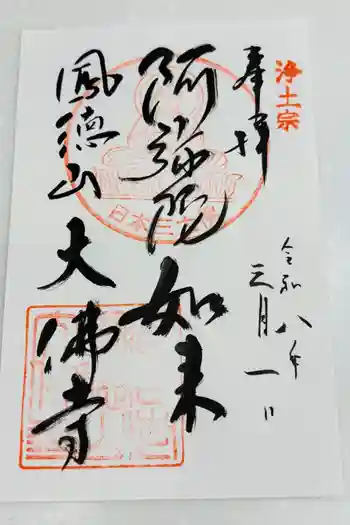 浄土宗
奉拝
令和八年
三月一日
阿弥陀如来
日本三大佛
鳳徳山大佛寺